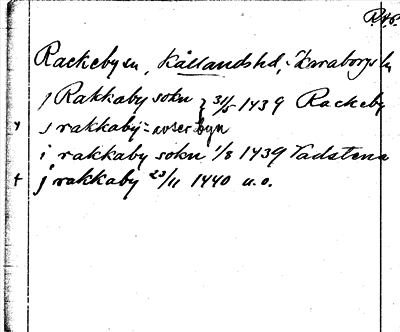 R.A.P.
Rackeby sn, Kållandshd, Skaraborgs län
j Rakkaby sokn } 31/5 1439 Rackeby
j rakkaby = avser byn
i rakkaby sokn 1/8 1439 Vadstena
j rakkaby 23/11 1440 u.o.